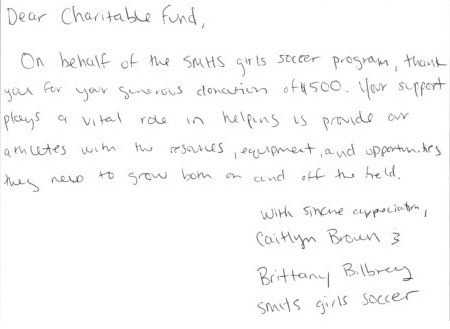 Dear Charitable Fund,
On behalf of the SMHS girls soccer program, thank
you for your generous donation of $500. Your support
plays a vital role in helping us provide our
athletes with the resources, equipment, and opportunities
they need to grow both on and off the field.
With sincere appreciation,
Caitlyn Brown &
Brittany Bilbrey
SMHS girls soccer